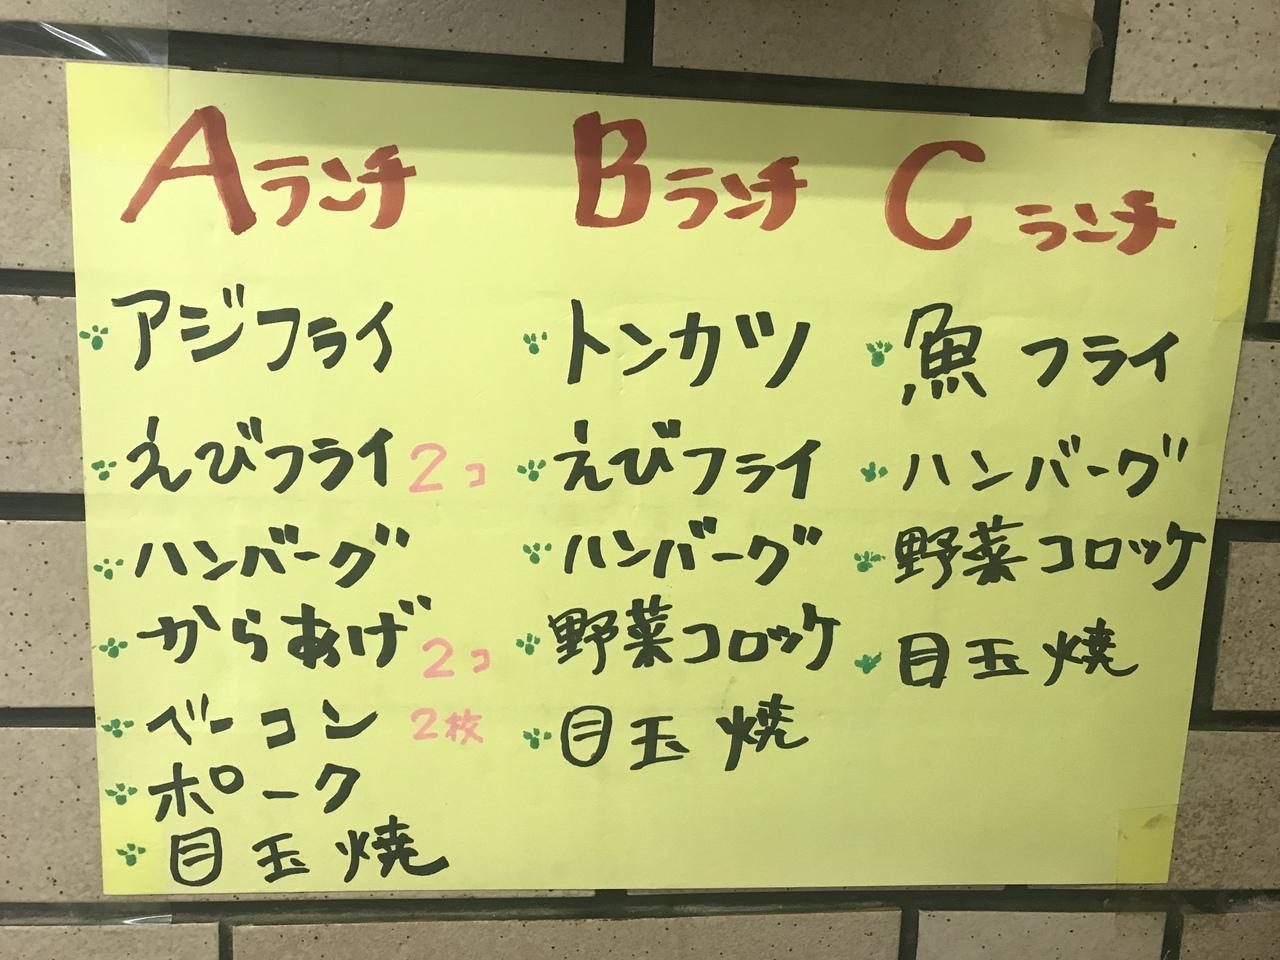 Aランチ
アジフライ
えびフライ 2コ
ハンバーグ
からあげ 2コ
ベーコン 2枚
ポーク
目玉焼
Bランチ
トンカツ
えびフライ
ハンバーグ
野菜コロッケ
目玉焼
Cランチ
魚フライ
ハンバーグ
野菜コロッケ
目玉焼